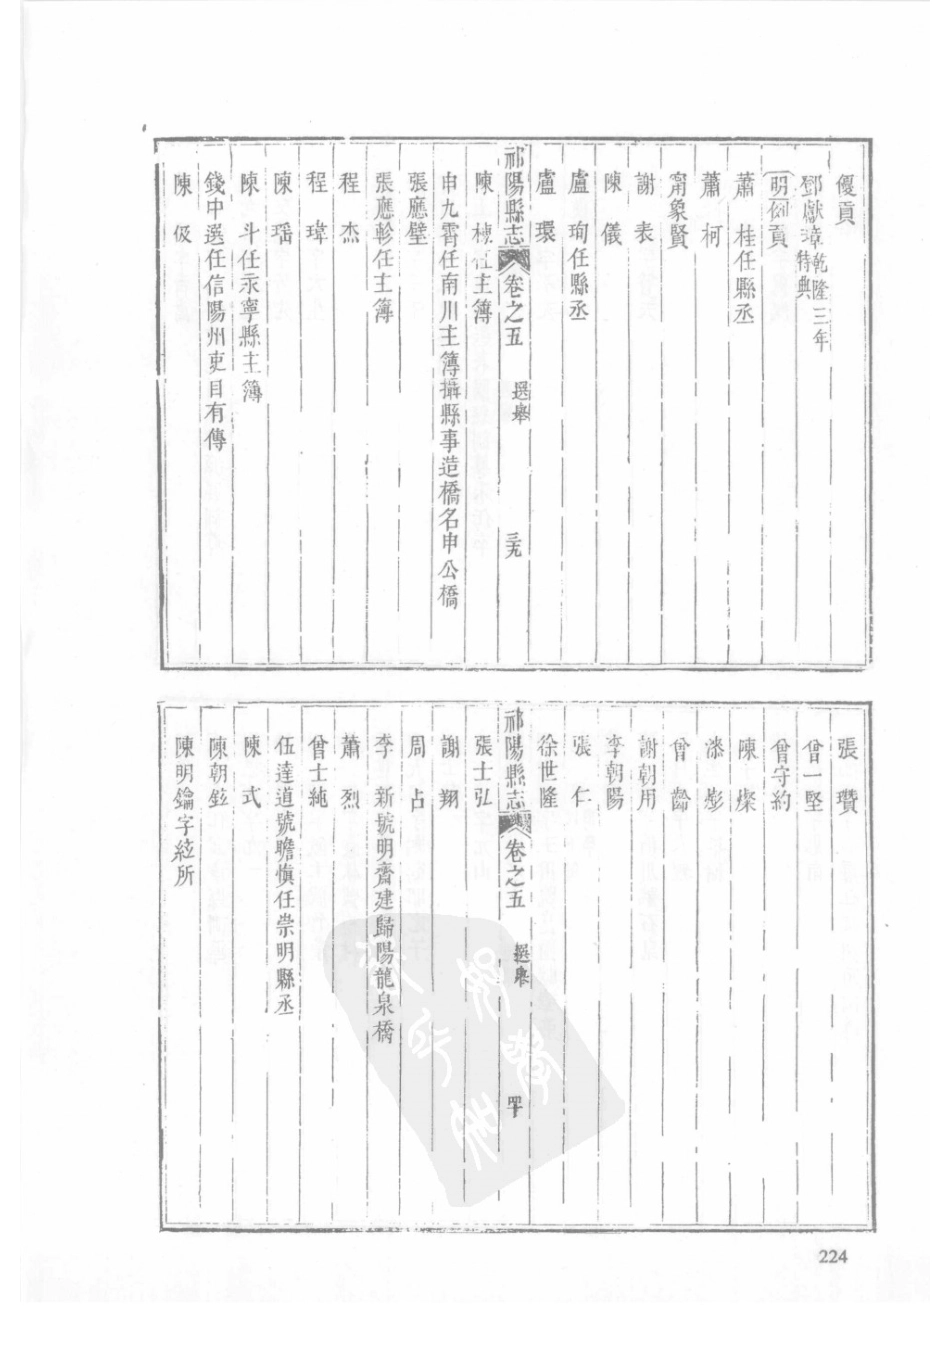 優貢
鄧獻璋乾隆三年特典
明例貢
蕭桂任縣丞
蕭柯
甯象賢
謝表
陳儀
盧珣任縣丞
盧環
祁陽縣志 卷之五 選舉 三九
陳 任主簿
申九霄任南川主簿攝縣事造橋名申公橋
張應壁
張應軫任主簿
程杰
程瑋
陳瑶
陳斗任永寧縣主簿
錢中選任信陽州吏目有傳
陳伋
張瓚
曾一堅
曾守約
陳燦
漆彭
曾齡
謝朝用
李朝陽
張仁
徐世隆
祁陽縣志 卷之五 選舉 四十
張士弘
謝翔
周占
李新號明齋建歸陽龍泉橋
蕭烈
曾士純
伍達道號瞻愼任崇明縣丞
陳式
陳朝鉉
陳明鑰字 所
224